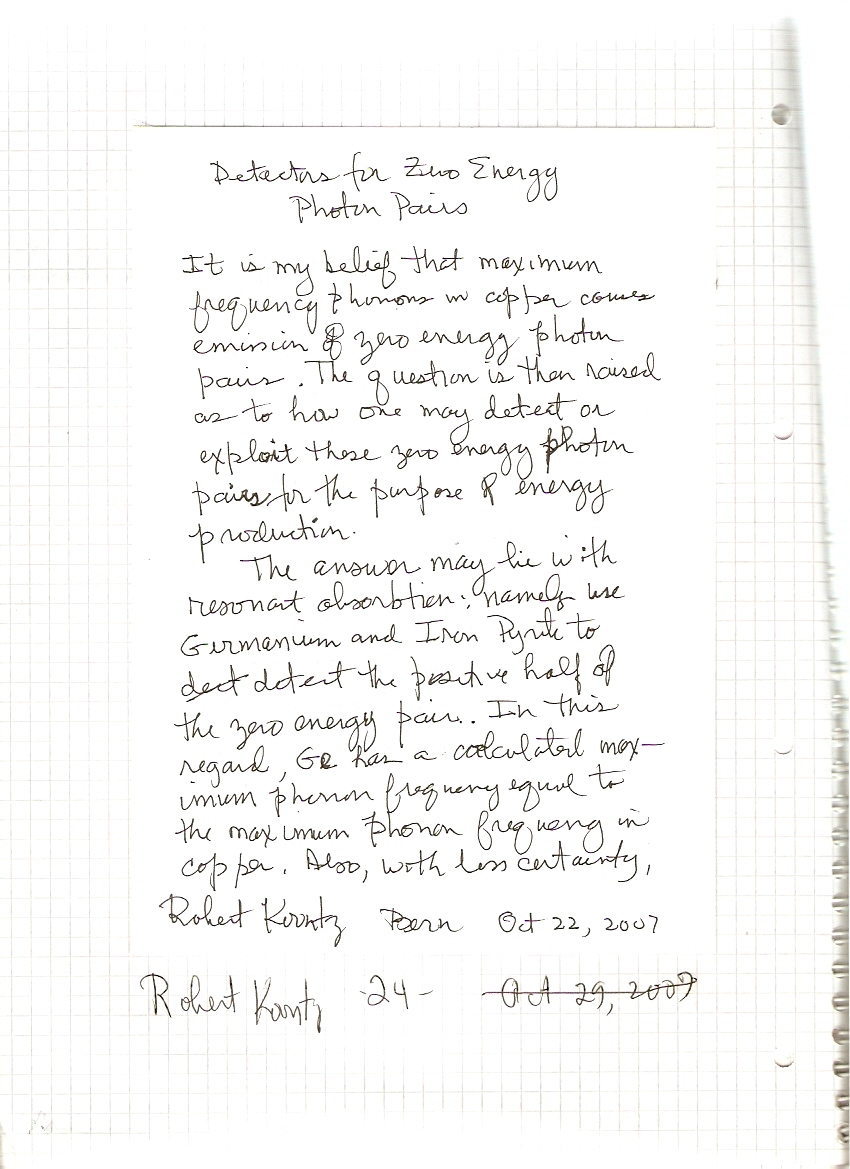 Detectors for Zero Energy
Photon Pairs
It is my belief that maximum
frequency phonons in copper comes
emission of zero energy photon
pairs. The question is then raised
as to how one may detect or
exploit these zero energy photon
pairs, for the purpose of energy
production.
The answer may lie with
resonant absorbtion: namely use
Germanium and Iron Pyrite to
dect detect the positive half of
the zero energy pair.. In this
regard, Ge has a calculated max-
imum phonon frequency equal to
the maximum phonon frequency in
copper. Also, with less certainty,
Robert Koontz Bern Oct 22, 2007
Robert Koontz -24- Oct 29, 2007